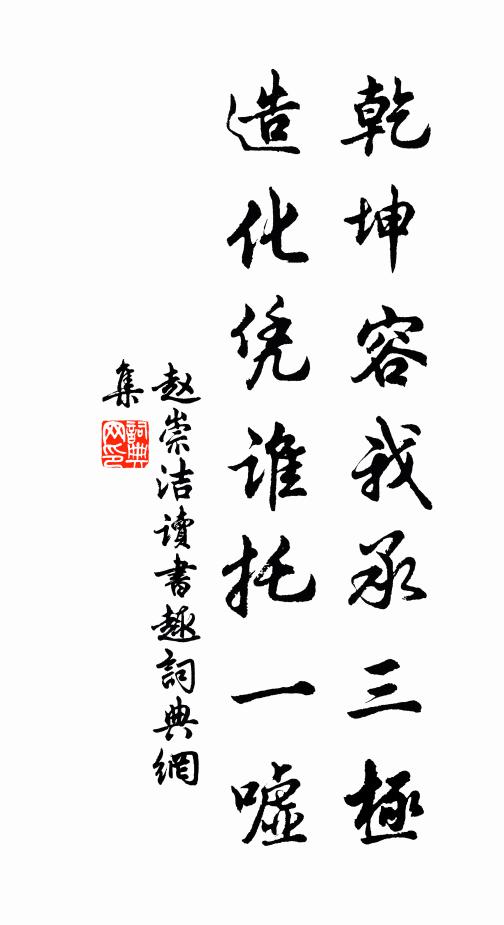 乾坤容我承三極
造化凭谁托一嘘
赵崇洁讀書趣詞典網
集
詞典
网印